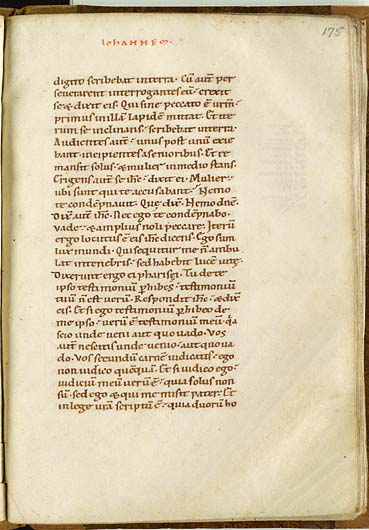 IOHANNEM.
175
digito scribebat in terra. Cū autē per
severarent interrogantes eū. erexit
se & dixit eis. Qui sine peccato ē urm̄.
primus in illā lapidē mittat. Et ite
rum se inclinans. scribebat in terra.
Audientes autē. unus post unū exie
bant. incipientes a senioribus. Et re
mansit solus. & mulier in medio stans.
Erigens autē se ihc̄. dixit ei. Mulier.
ubi sunt qui te accusabant. Nemo
te condēpnavit. Quę dix̄. Nemo dn̄e.
Dix̄ autē ihc̄. Nec ego te condēpnabo.
vade. & amplius noli peccare. Iterū
ergo locutus ē eis ihc̄ dicens. Ego sum
lux mundi. Qui sequitur me n̄ ambu
lat in tenebris. sed habebit lucē uitę.
Dixerunt ergo ei pharisei. Tu de te
ipso testimoniū prohibes. testimoniū
tuū n̄ est verū. Respondit ihc̄. & dix̄
eis. Et si ego testimoniū prohibeo de
me ipso. verū ē testimoniū meū. q̄a
scio unde veni aut quo vado. Vos
autē nescitis unde venio. aut quo va
do. Vos secundū carnē iudicatis. ego
non iudico quēquā. Et si iudico ego.
iudiciū meū verū ē. quia solus non
sū. sed ego & qui me misit pater. Et
in lege urā scriptū ē. quia duorū ho